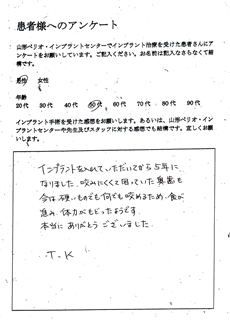 患者様へのアンケート
山形ペリオ・インプラントセンターでインプラント治療を受けた患者さんにア
ンケートをお願いしています。ご記入ください。お名前は記入なさらなくて結
構です。
男性 女性
年齢
20代 30代 40代 50代 60代 70代 80代 90代
インプラント手術を受けた感想をお願いします。あるいは、山形ペリオ・イン
プラントセンターや先生及びスタッフに対する感想でも結構です。宜しくお願
いします。
インプラントを入れていただいてから5年に
なりました。咬みにくくて困っていた奥歯も
今は硬いものでも何でも咬めるため、食が
進み、体力がもどったようです。
本当にありがとうございました。
T.K